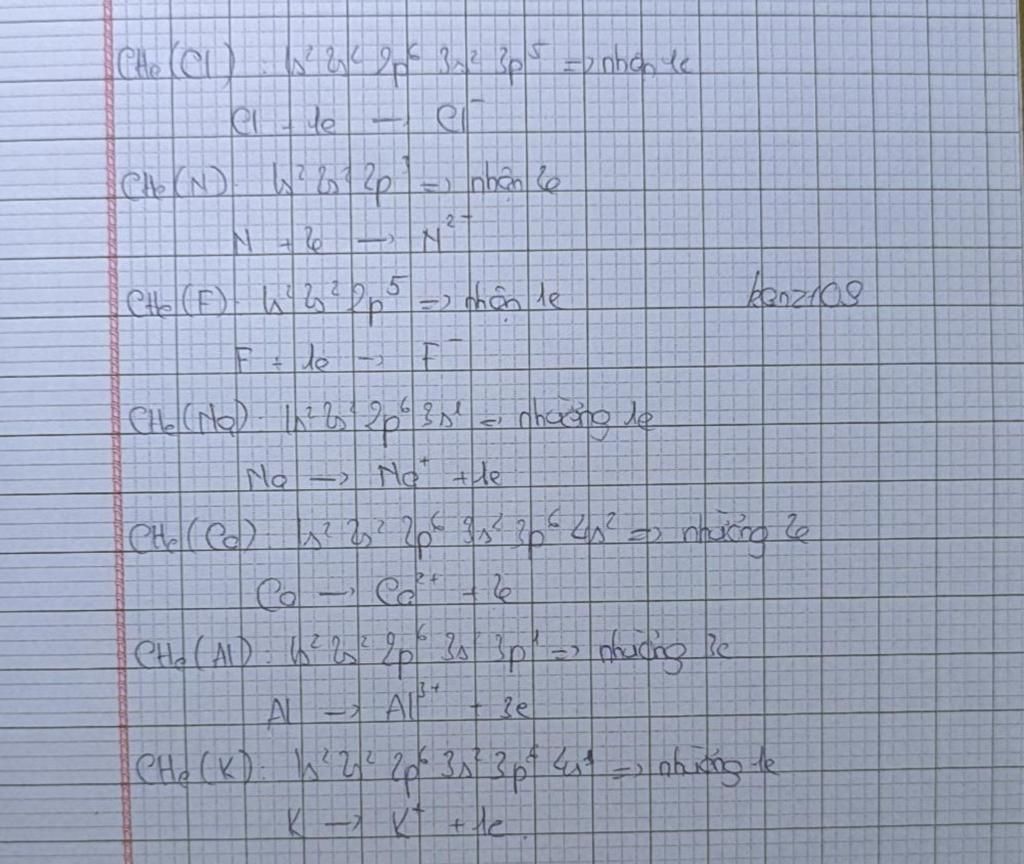 CHe (Cl) : 1s² 2s² 2p⁶ 3s² 3p⁵ => nhận 1e
Cl + 1e → Cl⁻
CHe (N) : 1s² 2s² 2p³ => nhận 2e
N + 2e → N²⁻
CHe (F) : 1s² 2s² 2p⁵ => nhận 1e
kanz109
F + 1e → F⁻
CHe (Na) : 1s² 2s² 2p⁶ 3s¹ => nhường 1e
Na → Na⁺ + 1e
CHe (Ca) : 1s² 2s² 2p⁶ 3s² 3p⁶ 4s² => nhường 2e
Ca → Ca²⁺ + 2e
CHe (Al) : 1s² 2s² 2p⁶ 3s² 3p¹ => nhường 3e
Al → Al³⁺ + 3e
CHe (K) : 1s² 2s² 2p⁶ 3s² 3p⁶ 4s¹ => nhường 1e
K → K⁺ + 1e.